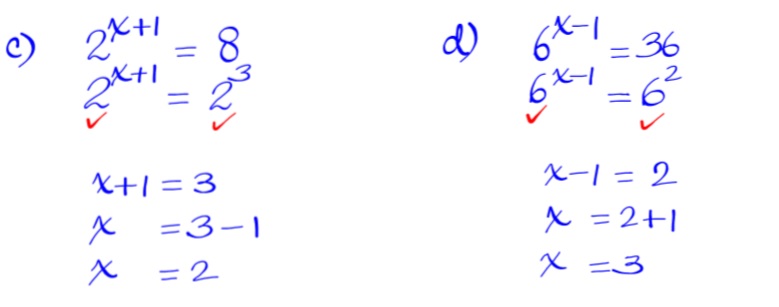 c) 2^{x+1} = 8
2^{x+1} = 2^3
x+1 = 3
x = 3-1
x = 2
d) 6^{x-1} = 36
6^{x-1} = 6^2
x-1 = 2
x = 2+1
x = 3